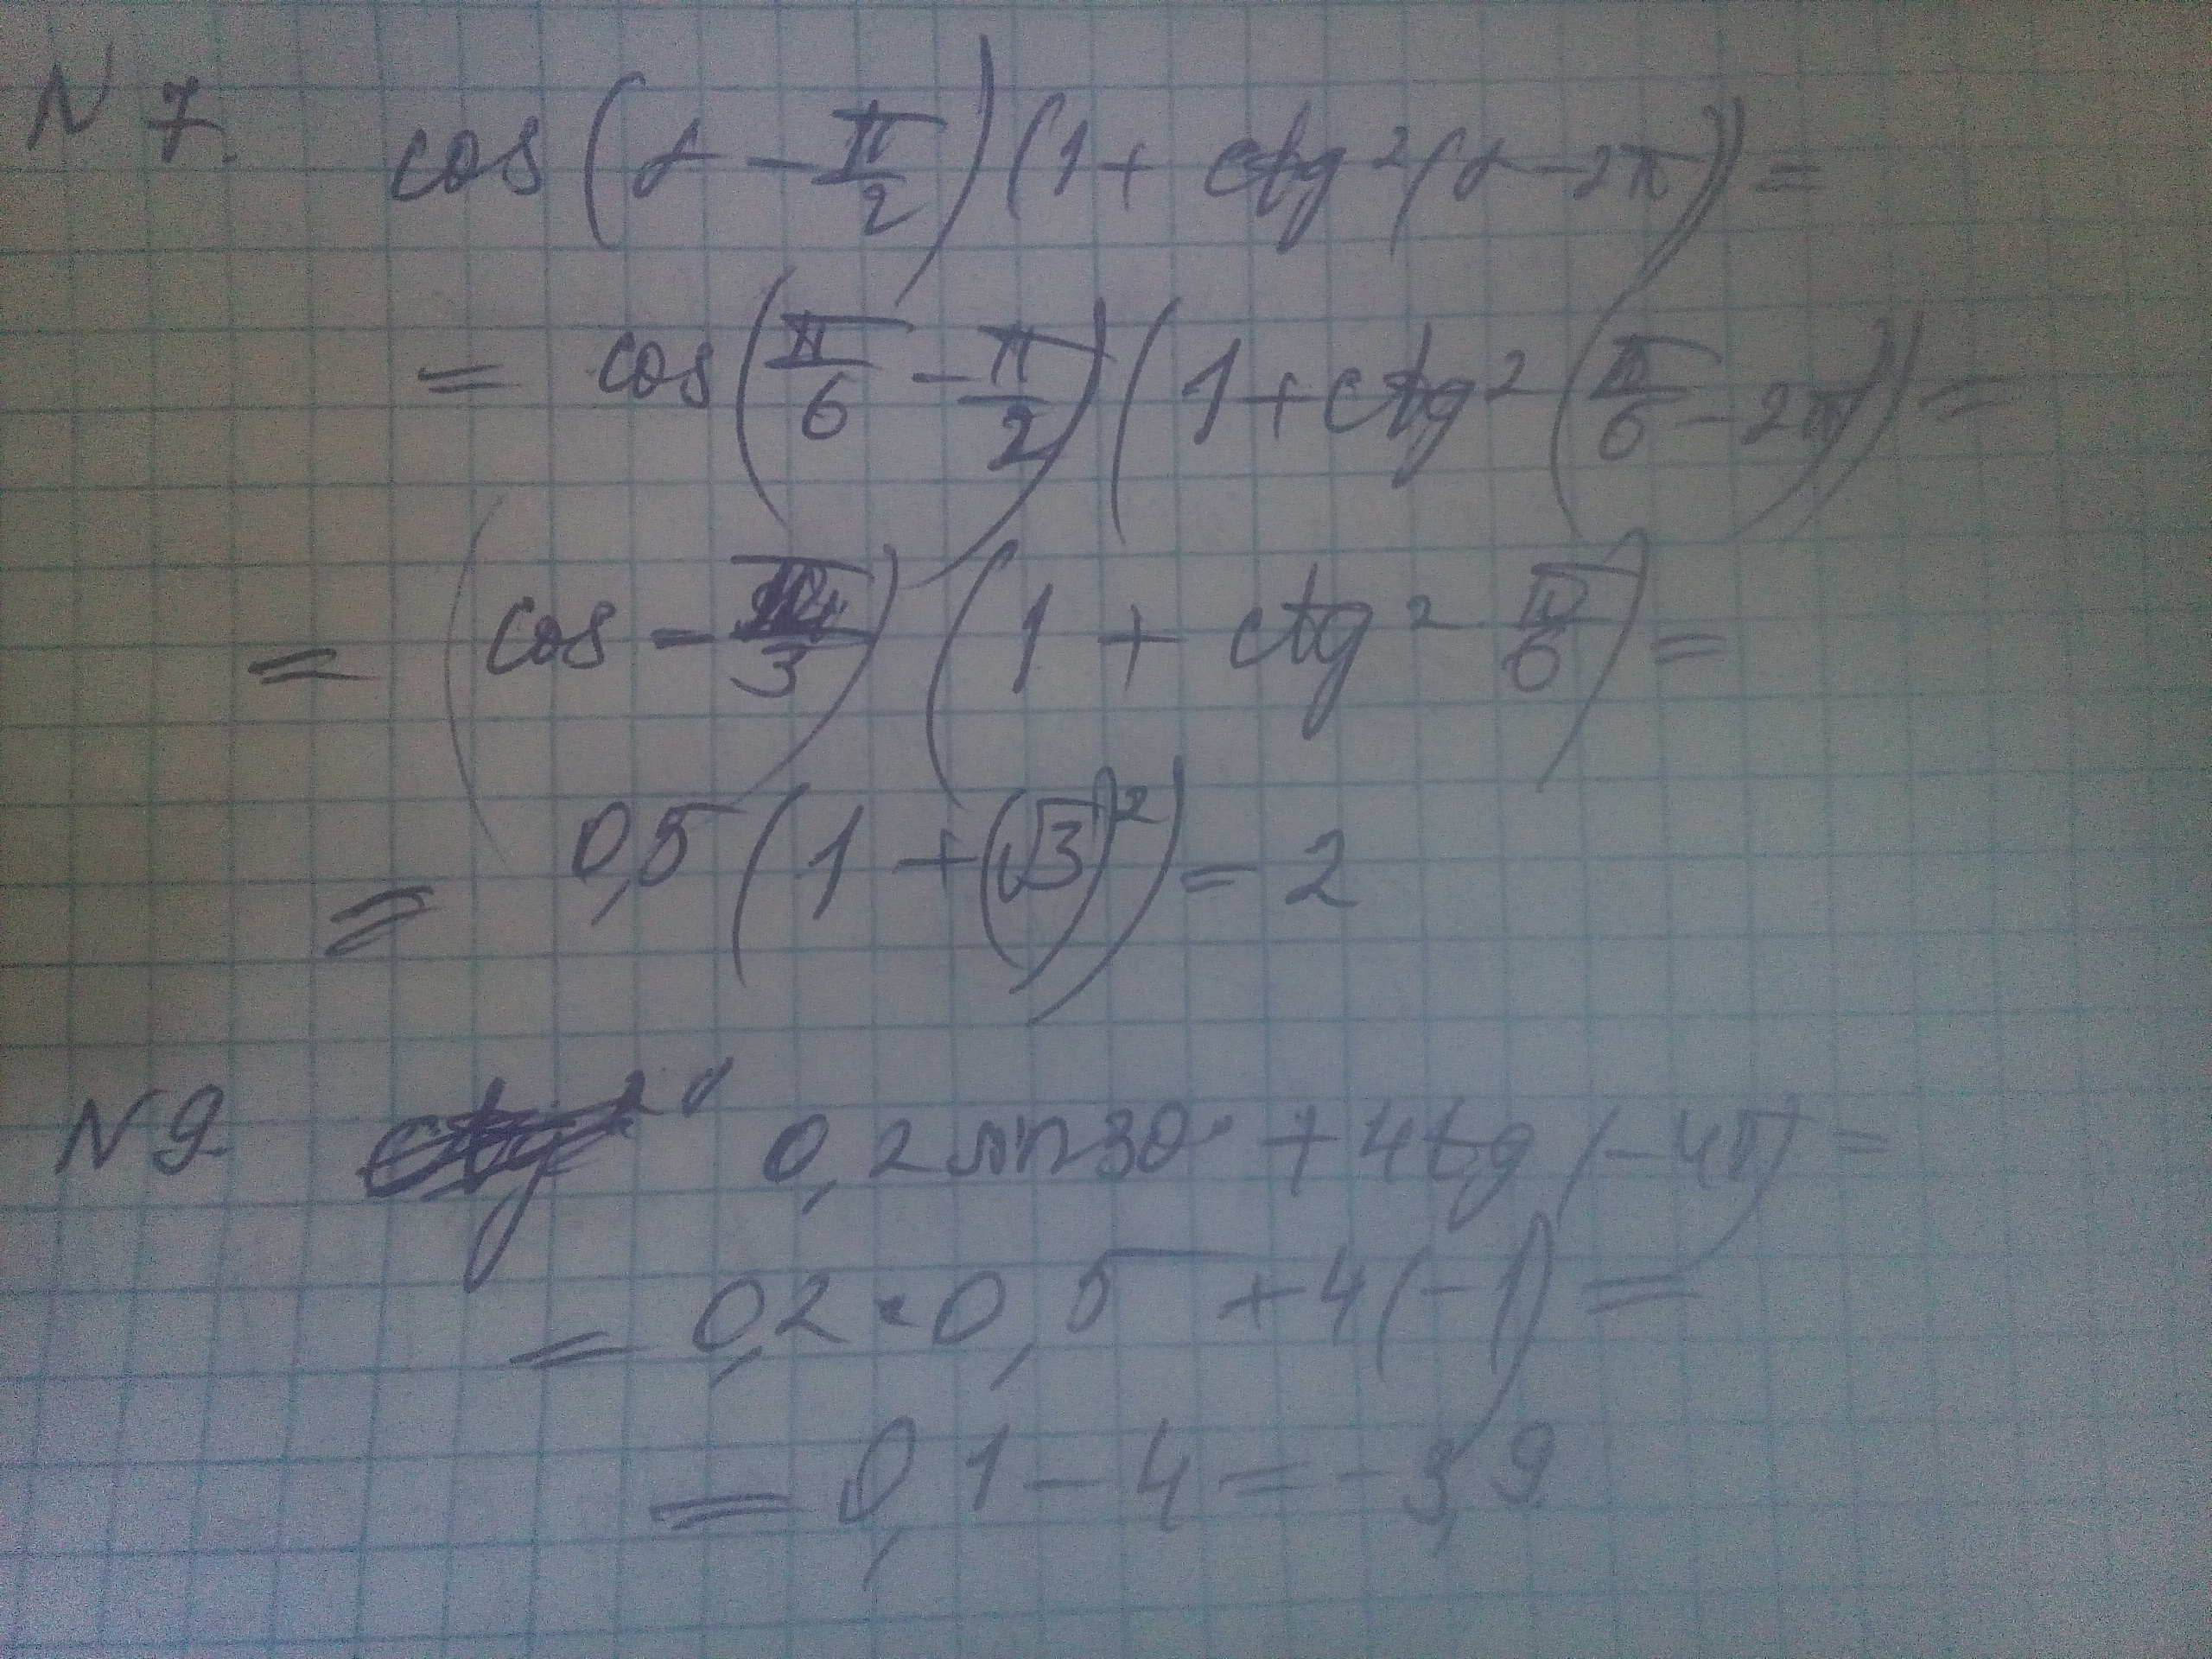 N 7. cos(α - π/2)(1 + ctg²(α - 2π)) =
= cos(π/6 - π/2)(1 + ctg²(π/6 - 2π)) =
= (cos - π/3)(1 + ctg² π/6) =
= 0,5(1 + (√3)²) = 2
N 9 0,2 sin30° + 4tg(-45) =
= 0,2 · 0,5 + 4(-1) =
= 0,1 - 4 = -3,9